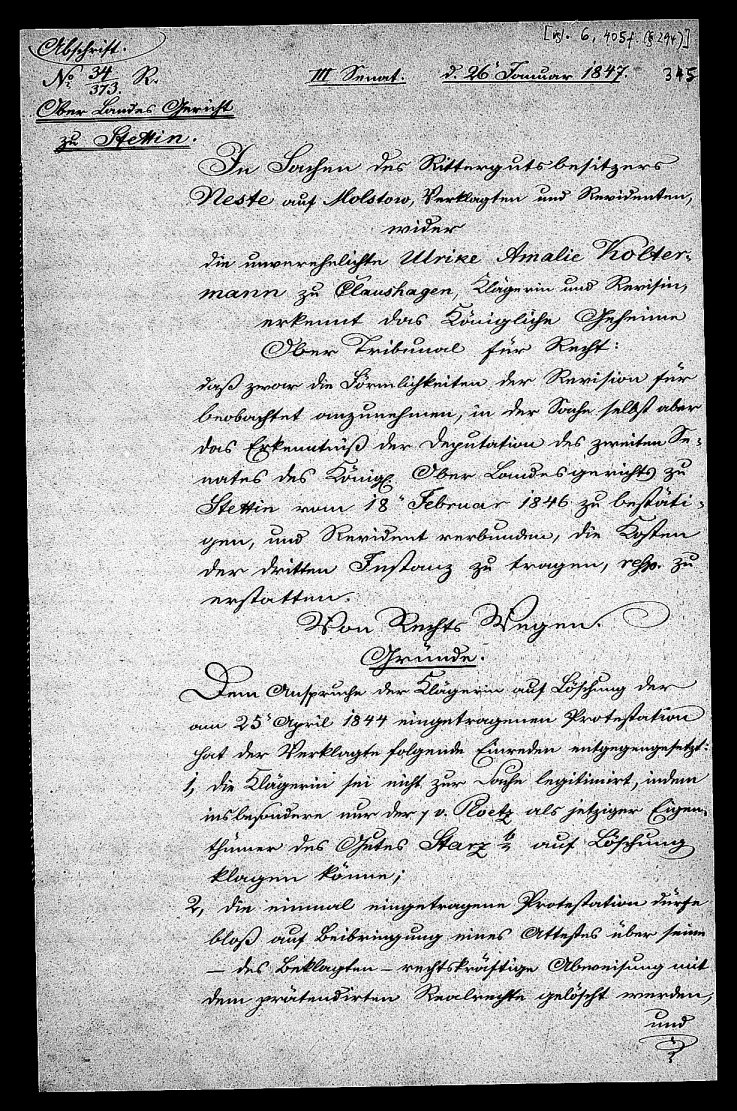 [vgl. 6, 405f. (§ 294)]
Abschrift.
No. 34/373. R.
III Senat. d. 26t Januar 1847. 345
Ober Landes Gericht
zu Stettin.
In Sachen des Rittergutsbesitzers
Neste auf Molstow, Verklagten und Revidenten,
wider
die unverehelichte Ulrike Amalie Kolter-
mann zu Claushagen, Klägerin und Revisin,
erkennt das Königliche Geheime
Ober Tribunal für Recht:
daß zwar die Förmlichkeiten der Revision für
beobachtet anzunehmen, in der Sache selbst aber
das Erkenntniß der Deputation des zweiten Se-
nates des Königl. Ober Landesgerichts zu
Stettin vom 18t Februar 1846 zu bestäti-
gen, und Revident verbunden, die Kosten
der dritten Instanz zu tragen, resp. zu
erstatten.
Von Rechts Wegen.
Gründe.
Dem Anspruche der Klägerin auf Löschung der
am 25t April 1844 eingetragenen Protestation
hat der Verklagte folgende Einreden entgegengesetzt:
1, die Klägerin sei nicht zur Sache legitimirt, indem
insbesondere nur der v. Ploetz als jetziger Eigen-
thümer des Gutes Starz auf Löschung
klagen könne;
2, die einmal eingetragene Protestation dürfe
bloß auf Beibringung eines Attestes über seine
– des Beklagten – rechtskräftige Abweisung mit
dem prätendirten Realrechte gelöscht werden,
und